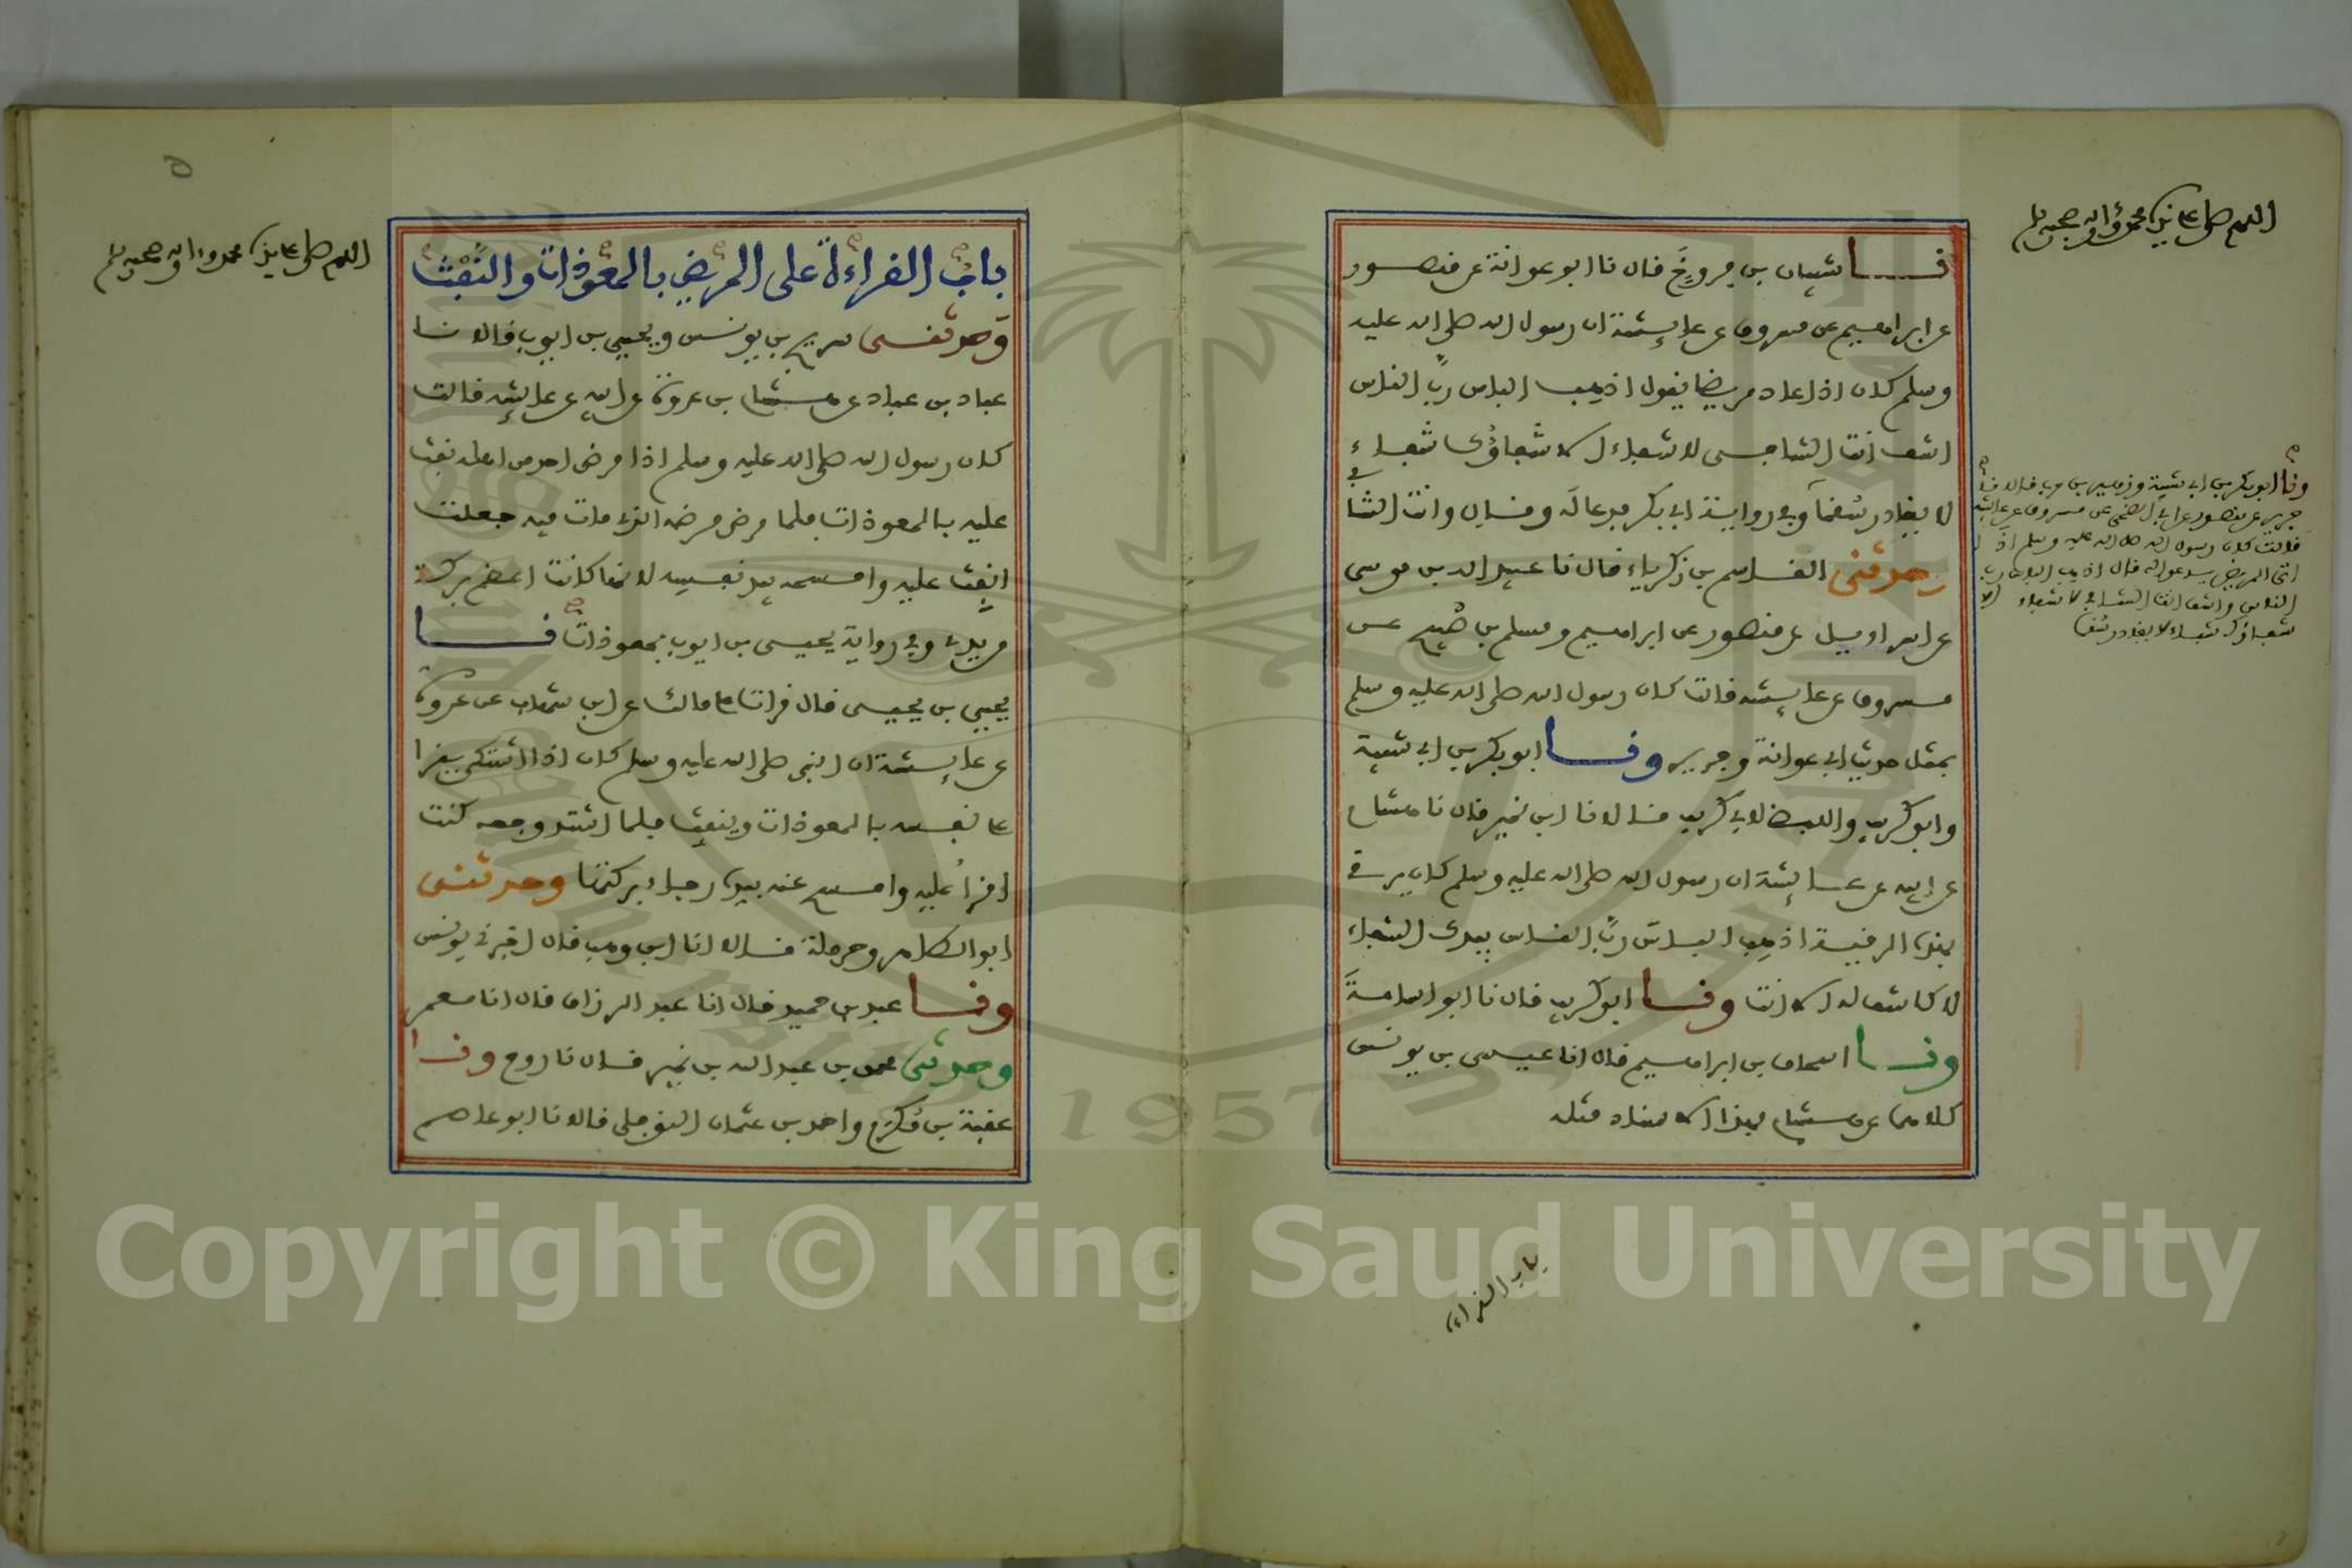 اللهم صل على سيدنا محمد واله وصحبه وسلم
نا شيبان بن فروخ قال نا ابو عوانة عن منصور
عن ابراهيم عن مسروق عن عايشة ان رسول الله صلى الله عليه
وسلم كان اذا عاد مريضا يقول اذهب الباس رب الناس
اشف انت الشافي لا شفاء الا شفاؤك شفاء
لا يغادر سقما وفي رواية ابي بكر فدعا له وقال وانت الشافي
وحدثني القاسم بن زكرياء قال نا عبيد الله بن موسى
عن اسراءيل عن منصور عن ابراهيم ومسلم بن صبيح عن
مسروق عن عايشة قالت كان رسول الله صلى الله عليه وسلم
بمثل حديث ابي عوانة وجرير ونا ابو بكر بن ابي شيبة
وابو كريب واللفظ لابي كريب قالا نا ابن نمير قال نا هشام
عن ابيه عن عايشة ان رسول الله صلى الله عليه وسلم كان يرقي
بهذه الرقية اذهب الباس رب الناس بيدك الشفاء
لا كاشف له الا انت ونا ابو كريب قال نا ابو اسامة
ونا اسحاق بن ابراهيم قال انا عيسى بن يونس
كلاهما عن هشام بهذا الاسناد مثله
ونا ابو بكر بن ابي شيبة وزهير بن حرب قالا نا
جرير عن منصور عن ابي الضحى عن مسروق عن عايشة
قالت كان رسول الله صلى الله عليه وسلم اذا
اتى المريض يدعو له قال اذهب الباس رب
الناس واشف انت الشافي لا شفاء الا
شفاؤك شفاء لا يغادر سقما
باب القراءة
٥
اللهم صل على سيدنا محمد واله وصحبه وسلم
باب القراءة على المريض بالمعوذات والنفث
وحدثني سريج بن يونس ويحيى بن ايوب قالا نا
عباد بن عباد عن هشام بن عروة عن ابيه عن عايشة قالت
كان رسول الله صلى الله عليه وسلم اذا مرض احد من اهله نفث
عليه بالمعوذات فلما مرض مرضه الذي مات فيه جعلت
انفث عليه وامسحه بيد نفسه لانها كانت اعظم بركة
من يدي وفي رواية يحيى بن ايوب بمعوذات نا
يحيى بن يحيى قال قرات على مالك عن ابن شهاب عن عروة
عن عايشة ان النبي صلى الله عليه وسلم كان اذا اشتكى يقرا
على نفسه بالمعوذات وينفث فلما اشتد وجعه كنت
اقرا عليه وامسح عنه بيده رجاء بركتها وحدثني
ابو الطاهر وحرملة قالا انا ابن وهب قال اخبرني يونس
ونا عبد بن حميد قال انا عبد الرزاق قال انا معمر
وحدثني محمد بن عبد الله بن نمير قال نا روح ونا
عقبة بن مكرم واحمد بن عثمان النوفلي قالا نا ابو عاصم
1957
Copyright © King Saud University